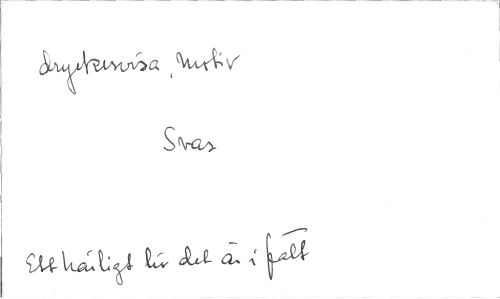 dryckesvisa, Motiv
Svas
Ett härligt liv det är i fält